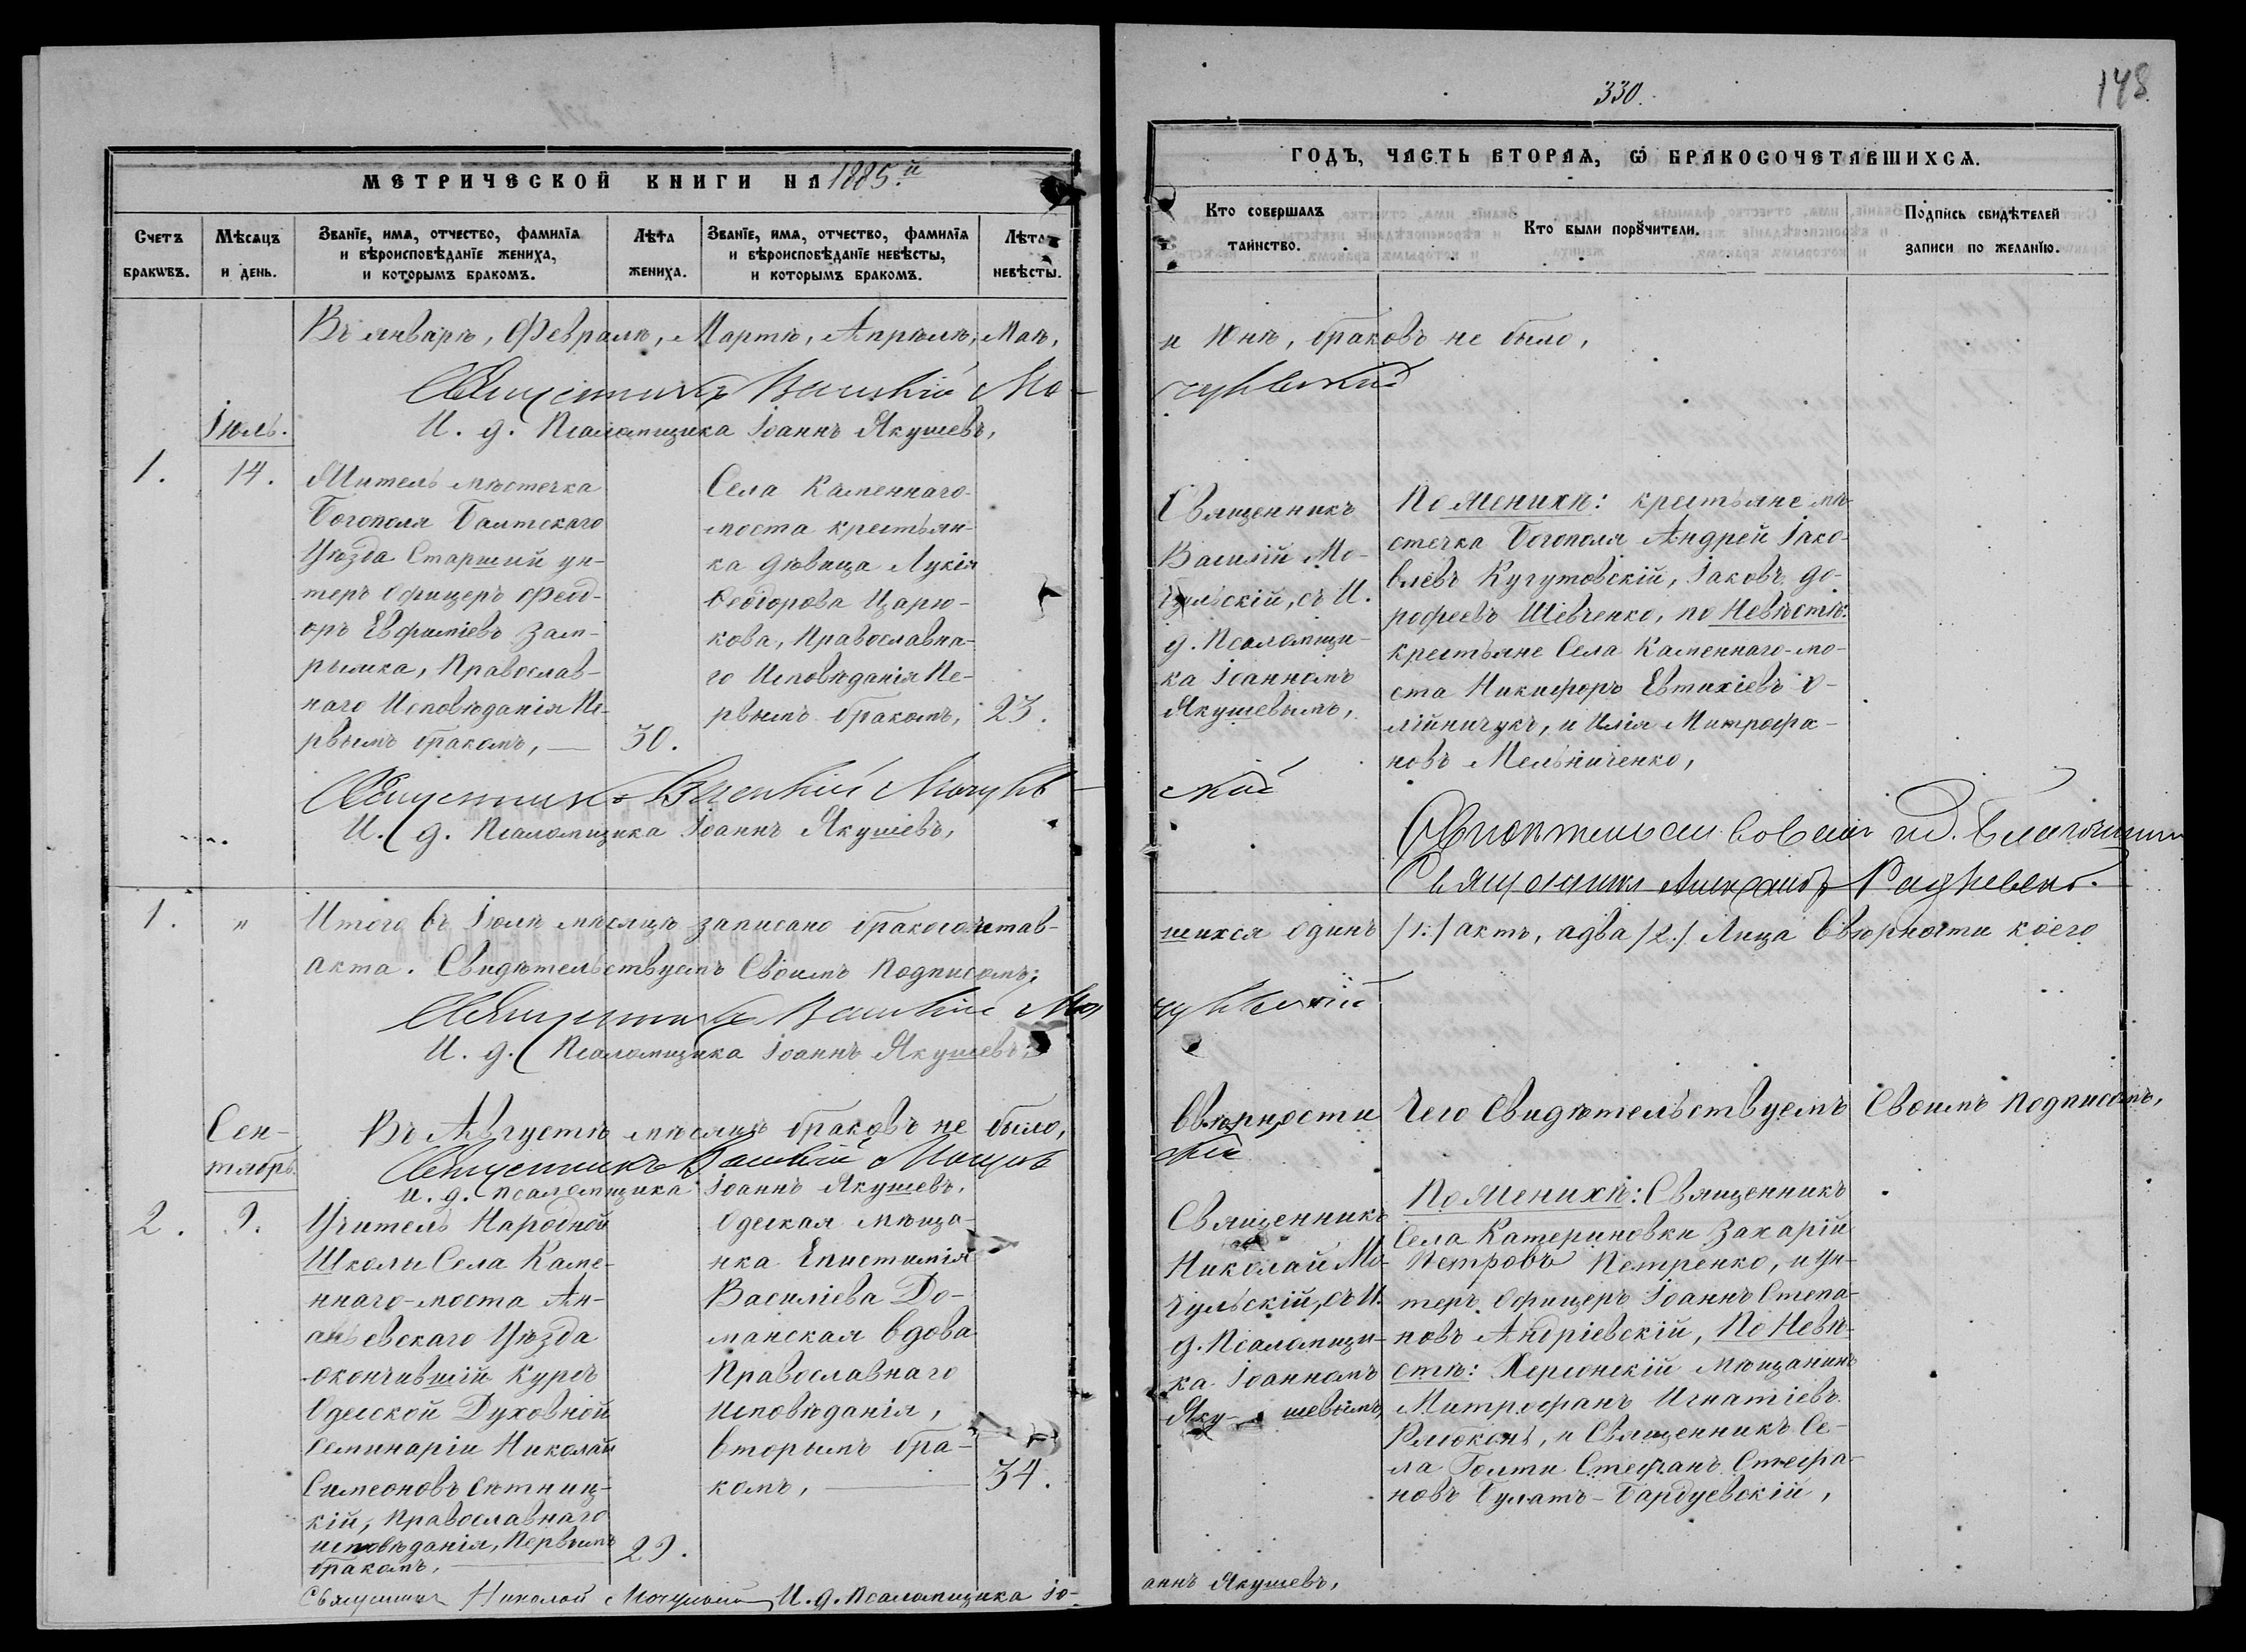 330.
148.
МЕТРИЧЕСКОЙ КНИГИ НА 1885.й
ГОДЪ, ЧАСТЬ ВТОРАЯ, Ѡ БРАКОСОЧЕТАВШИХСЯ.
Счетъ браковъ.
Мѣсяцъ и день.
Званіе, имя, отчество, фамилія
и вѣроисповѣданіе жениха,
и которымъ бракомъ.
Лѣта
жениха.
Званіе, имя, отчество, фамилія
и вѣроисповѣданіе невѣсты,
и которымъ бракомъ.
Лѣта
невѣсты.
Кто совершалъ
таинство.
Кто были поручители.
Подпись свидѣтелей
записи по желанію.
Въ январѣ, Февралѣ, Мартѣ, Апрѣлѣ, Маѣ,
и Юнѣ, браковъ не было,
Священникъ Василій Мо-
гульскій
И. д. Псаломщика Іоаннъ Якушевъ,
Іюль.
1.
14.
Житель мѣстечка
Богополя Балтскаго
Уѣзда Старшій ун-
теръ Офицеръ Фео-
оръ Евфиміевъ Зам-
рыжка, Православ-
наго Исповѣданія Пе-
рвымъ бракомъ,
30.
Села Каменнаго-
моста крестьян-
ка дѣвица Лукія
Ѳеодорова Царю-
кова, Православна-
го Исповѣданія Пе-
рвымъ бракомъ,
23.
Священникъ
Василій Мо-
гульскій, съ И.
д. Псаломщи-
ка Іоанномъ
Якушевымъ,
По Женихѣ: крестьяне мѣ-
стечка Богополя Андрей Іако-
влевъ Кугутовскій, Іаковъ До-
рофеевъ Шевченко, по Невѣстѣ:
крестьяне Села Каменнаго-мо-
ста Никифоръ Евтихіевъ О-
лійничукъ, и Илія Митрофа-
новъ Мельниченко,
Священникъ Василій Могуль-
скій
И. д. Псаломщика Іоаннъ Якушевъ,
Священникъ Александръ
1.
"
Итого въ Іюлѣ мѣсяцѣ записано бракосочетав-
шихся одинъ /1:/ актъ, а два /2./ Лица Ввѣрности коего
акта. Свидѣтельствуемъ Своимъ Подписомъ;
Священникъ Василій Мо-
гульскій
И. д. Псаломщика Іоаннъ Якушевъ;
Сен-
тябрь.
Въ Августѣ мѣсяцѣ браковъ не было,
Ввѣрности Чего Свидѣтельствуемъ Своимъ Подписомъ,
Священникъ Василій Могуль
скій
И. д. Псаломщика Іоаннъ Якушевъ,
2.
9.
Учитель Народной
Школы Села Каме-
ннаго-моста Ан-
аньевскаго Уѣзда
окончившій Курсъ
Одесской Духовной
Семинаріи Николай
Симеоновъ Сѣтниц-
кій, Православнаго
исповѣданія, Первымъ
бракомъ,
29.
Одеская мѣща-
нка Епистимія
Василіева До-
манская вдова
Православнаго
Исповѣданія,
вторымъ бра-
комъ,
34.
Священникъ
Николай Мо-
гульскій, съ И.
д. Псаломщи-
ка Іоанномъ
Яку-шевымъ,
По Женихѣ: Священникъ
Села Катериновки Захарій
Петровъ Петренко, и Ун-
теръ Офицеръ Іоаннъ Степа-
новъ Андріевскій, По Невѣ-
стѣ: Херсонскій Мѣщанинъ
Митрофанъ Игнатіевъ
и Священникъ Се-
ла Голты Стефанъ Стефа-
новъ Булатъ-Бардуевскій,
Священникъ Николай Могульскій И. д. Псаломщика Іо-
аннъ Якушевъ,